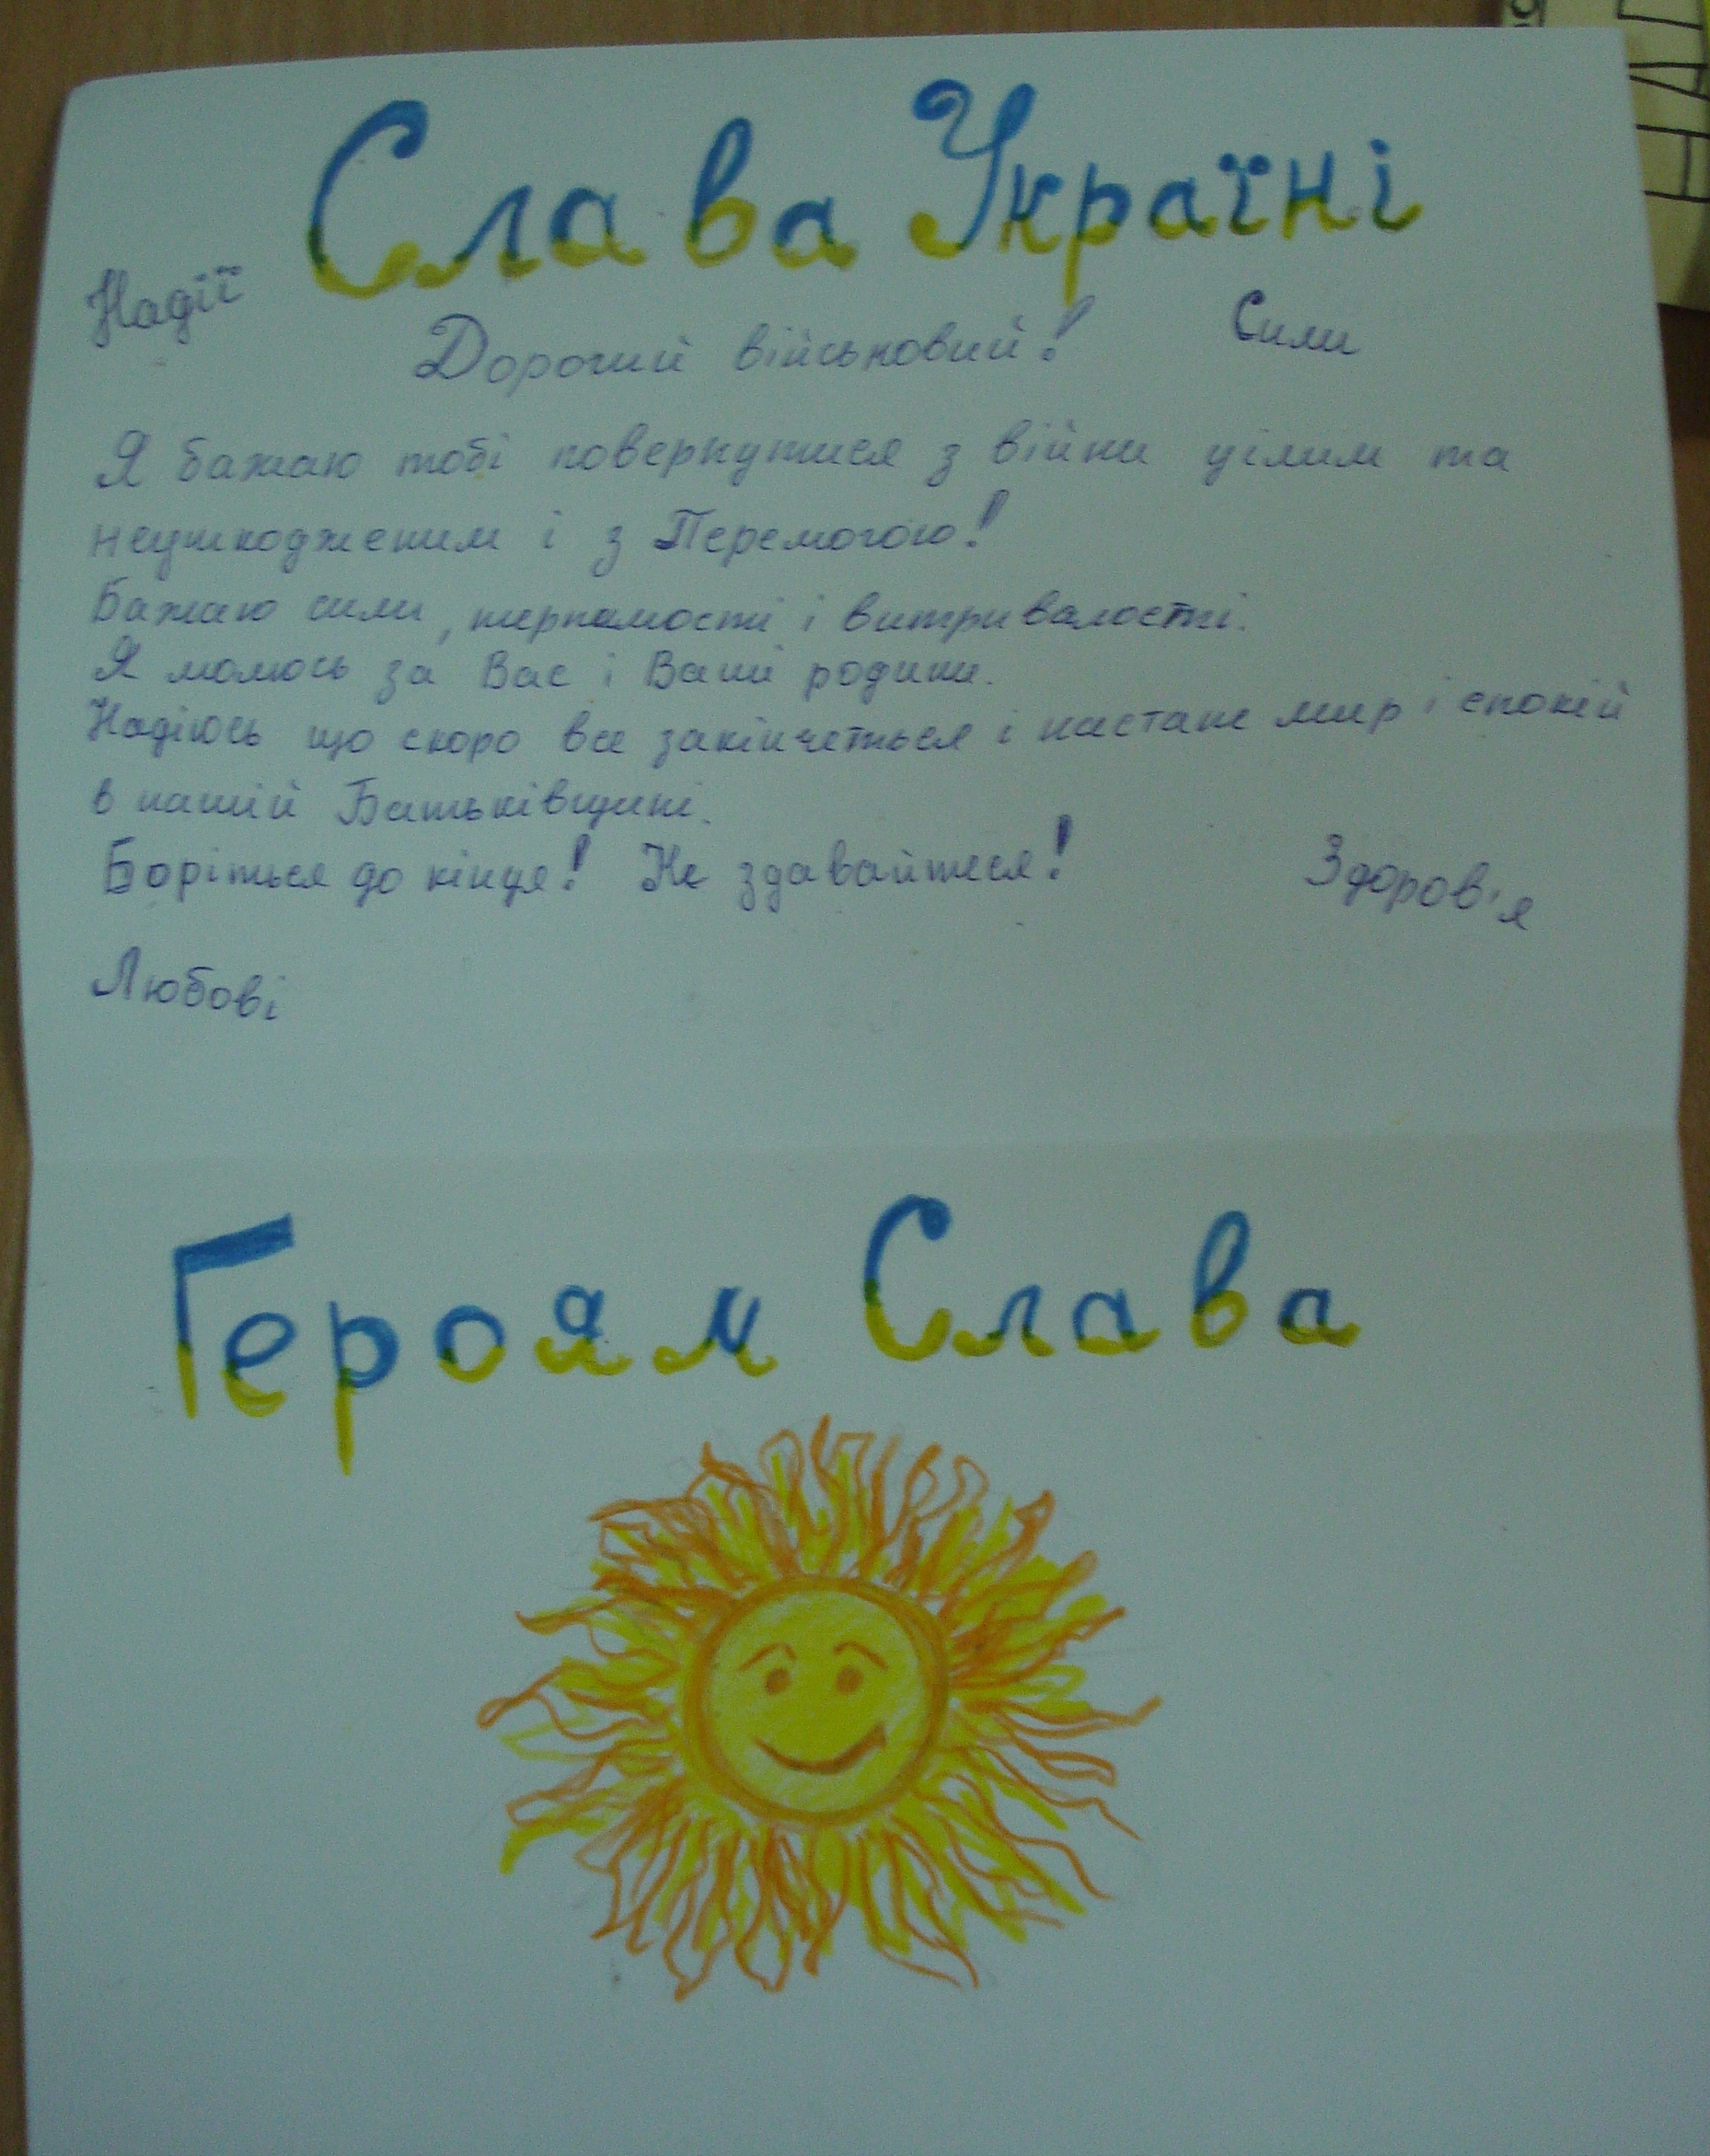 Слава Україні
Надії
Дорогий військовий!
Сили
Я бажаю тобі повернутися з війни цілим та
неушкодженим і з Перемогою!
Бажаю сили, терпимості і витривалості.
Я молюсь за Вас і Ваші родини.
Надіюсь що скоро все закінчеться і настане мир і спокій
в нашій Батьківщині.
Боріться до кінця! Не здавайтеся!
Здоров'я
Любові
Героям Слава